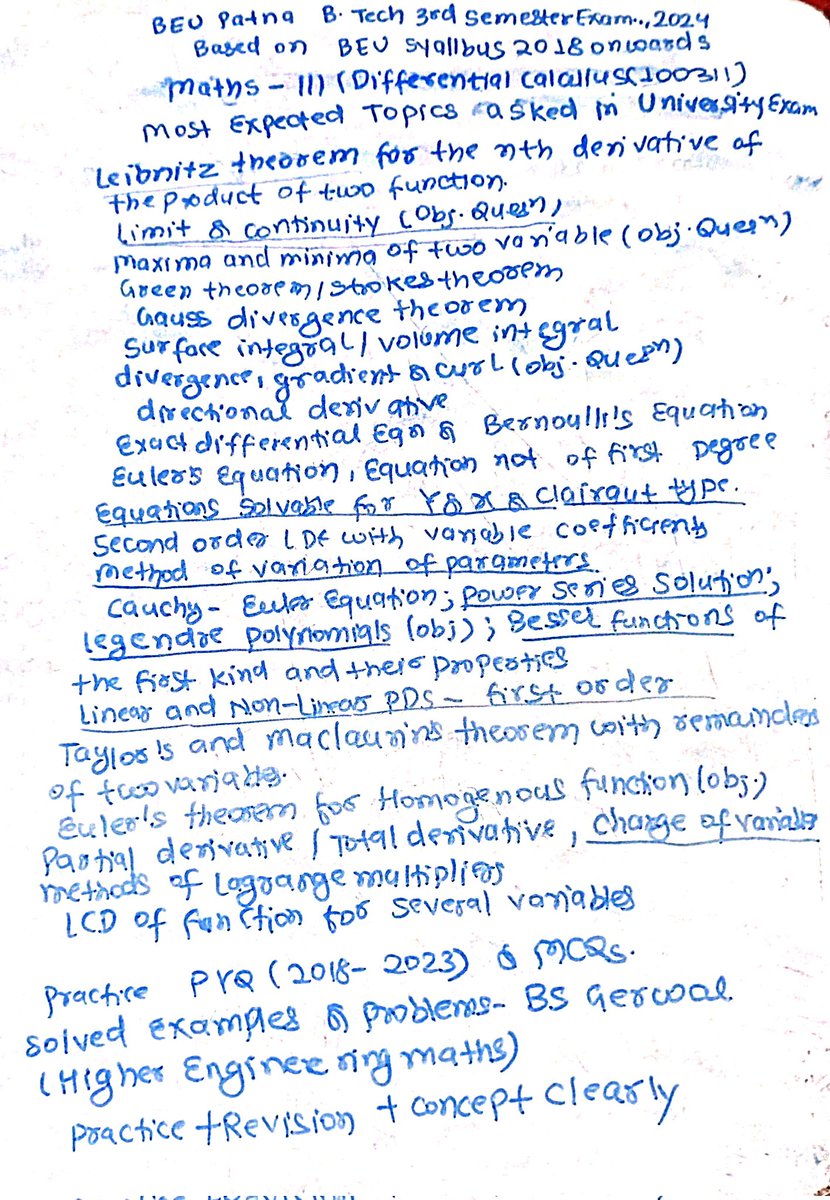 BEU Patna B. Tech 3rd Semester Exam.., 2024
Based on BEU Syallbus 2018 onwards
Maths - III (Differential Calculus (100311)
Most Expected Topics asked in University Exam
Leibnitz theorem for the nth derivative of
the product of two function.
Limit & continuity (Obj. Quesn)
Maxima and minima of two variable (obj. Quesn)
Green theorem / Strokes theorem
Gauss divergence theorem
Surface integral / volume integral
divergence, gradient & curl (obj. Quesn)
directional derivative
Exact differential Eqn & Bernoulli's Equation
Euler's Equation, Equation not of first Degree
Equations Solvable for Y & x & Clairaut type.
Second order LDE with variable coefficients
method of variation of parameters.
Cauchy - Euler Equation; power series solution;
legendre polynomials (obj); Bessel functions of
the first kind and their properties
Linear and Non-Linear PDS - first order
Taylor's and maclaurin's theorem with remainders
of two variable.
Euler's theorem for Homogenous function (obj.)
Partial derivative / Total derivative, change of variable
methods of Lagrange multipliers
LCD of function for several variables
Practice PYQ (2018- 2023) & MCQs.
Solved examples & problems- BS Gerwal
(Higher Engineering maths)
Practice + Revision + concept clearly